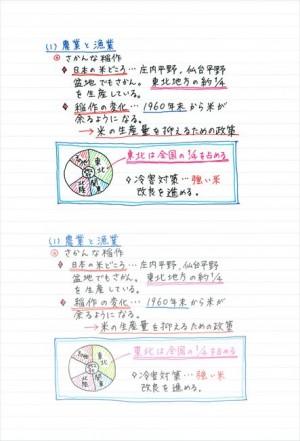 (1) 農業と漁業
◎ さかんな稲作
♦ 日本の米どころ… 庄内平野, 仙台平野
盆地でもさかん。東北地方の約1/4
を生産している。
♦ 稲作の変化… 1960年末から米が
余るようになる。
→ 米の生産量を抑えるための政策
東北は全国の1/4を占める
その他
東北
関東
北陸
◇ 冷害対策… 強い米
改良を進める。
(1) 農業と漁業
◎ さかんな稲作
♦ 日本の米どころ… 庄内平野, 仙台平野
盆地でもさかん。東北地方の約1/4
を生産している。
♦ 稲作の変化… 1960年末から米が
余るようになる。
→ 米の生産量を抑えるための政策
東北は全国の1/4を占める
その他
東北
関東
北陸
◇ 冷害対策… 強い米
改良を進める。